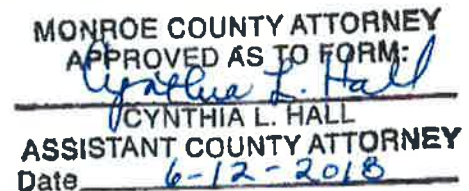 MONROE COUNTY ATTORNEY
APPROVED AS TO FORM:
Cynthia L. Hall
CYNTHIA L. HALL
ASSISTANT COUNTY ATTORNEY
Date 6-12-2018